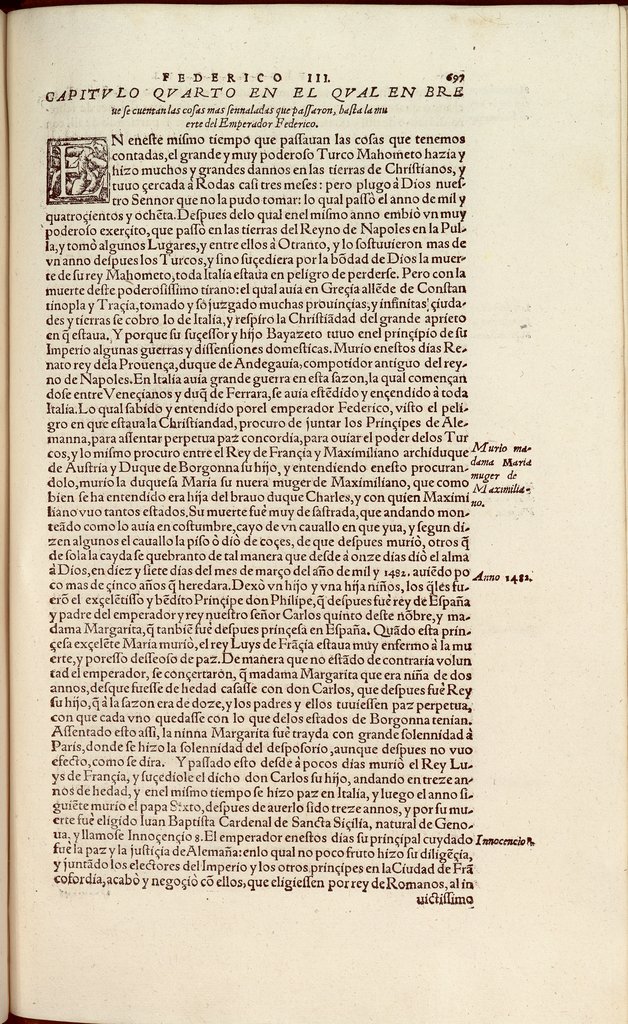 FEDERICO III. 697
CAPITVLO QVARTO EN EL QVAL EN BRE
ue se cuentan las cosas mas sennaladas que passaron, hasta la mu
erte del Emperador Federico.
EN eneste mismo tiempo que passauan las cosas que tenemos
contadas, el grande y muy poderoso Turco Mahometo hazia y
hizo muchos y grandes dannos en las tierras de Christianos, y
tuuo çercada à Rodas casi tres meses: pero plugo à Dios nues-
tro Sennor que no la pudo tomar: lo qual passò el anno de mil y
quatroçientos y ochẽta. Despues delo qual enel mismo anno embiò vn muy
poderoso exerçito, que passò en las tierras del Reyno de Napoles en la Pul-
la, y tomò algunos Lugares, y entre ellos à Otranto, y lo sostuuieron mas de
vn anno despues los Turcos, y sino suçediera por la bõdad de Dios la muer-
te de su rey Mahometo, toda Italia estaua en peligro de perderse. Pero con la
muerte deste poderosissimo tirano: el qual auia en Greçia allẽde de Constan
tinopla y Traçia, tomado y sojuzgado muchas prouinçias, y infinitas çiuda-
des y tierras se cobro lo de Italia, y respiro la Christiãdad del grande aprieto
en q̃ estaua. Y porque su suçessor y hijo Bayazeto tuuo enel prinçipio de su
Imperio algunas guerras y dissensiones domesticas. Murio enestos dias Re-
nato rey dela Prouença, duque de Andegauia, compotidor antiguo del rey-
no de Napoles. En Italia auia grande guerra en esta sazon, la qual començan
dose entre Veneçianos y duq̃ de Ferrara, se auia estẽdido y ençendido à toda
Italia. Lo qual sabido y entendido porel emperador Federico, visto el peli-
gro en que estaua la Christiandad, procuro de juntar los Prinçipes de Ale-
manna, para assentar perpetua paz concordia, para ouiar el poder delos Tur
cos, y lo mismo procuro entre el Rey de Françia y Maximiliano archiduque
de Austria y Duque de Borgonna su hijo, y entendiendo enesto procuran-
dolo, murio la duquesa Maria su nuera muger de Maximiliano, que como
bien se ha entendido era hija del brauo duque Charles, y con quien Maximi
liano vuo tantos estados. Su muerte fue muy desastrada, que andando mon-
teãdo como lo auia en costumbre, cayo de vn cauallo en que yua, y segun di-
zen algunos el cauallo la piso ò diò de coçes, de que despues murio, otros q̃
de sola la cayda se quebranto de tal manera que desde à onze dias diò el alma
à Dios, en diez y siete dias del mes de março del año de mil y 1482. auiẽdo po
co mas de çinco años q̃ heredara. Dexò vn hijo y vna hija niños, los q̃les fu-
erõ el exçelẽtisso y bẽdito Prinçipe don Philipe, q̃ despues fuè rey de España
y padre del emperador y rey nuestro señor Carlos quinto deste nõbre, y ma-
dama Margarita, q̃ tanbiẽ fuè despues prinçesa en España. Quãdo esta prin-
çesa exçelẽte Maria murio, el rey Luys de Frãçia estaua muy enfermo à la mu
erte, y poresso desseoso de paz. De manera que no estãdo de contraria volun
tad el emperador, se conçertaròn, q̃ madama Margarita que era niña de dos
annos, desque fuesse de hedad casasse con don Carlos, que despues fuè Rey
su hijo, q̃ à la sazon era de doze, y los padres y ellos tuuiessen paz perpetua,
con que cada vno quedasse con lo que delos estados de Borgonna tenian.
Assentado esto assi, la ninna Margarita fuè trayda con grande solennidad à
Paris, donde se hizo la solennidad del desposorio, aunque despues no vuo
efecto, como se dira. Y passado esto desde à pocos dias muriò el Rey Lu-
ys de Françia, y suçediole el dicho don Carlos su hijo, andando en treze an-
nos de hedad, y enel mismo tiempo se hizo paz en Italia, y luego el anno si-
guiẽte murio el papa Sixto, despues de auerlo sido treze annos, y por su mu-
erte fuè eligido Iuan Baptista Cardenal de Sancta Siçilia, natural de Geno-
ua, y llamose Innoçençio 8. El emperador enestos dias su prinçipal cuydado
fuè la paz y la justiçia de Alemaña: enlo qual no poco fruto hizo su diligẽçia,
y juntãdo los electores del Imperio y los otros prinçipes en la Ciudad de Frã
cofordia, acabò y negoçiò cõ ellos, que eligiessen por rey de Romanos, al in
uictissimo
Murio ma-
dama Maria
muger de
Maximilia-
no.
Anno 1482.
Innocencio 8.